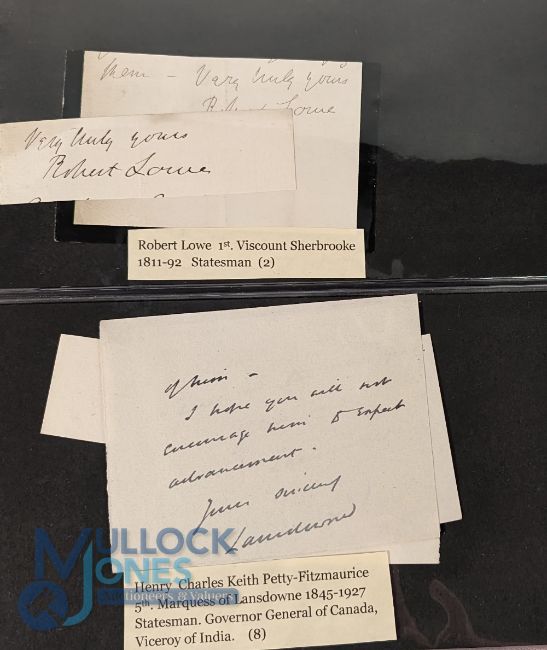 them - Very truly yours
Robert Lowe
Very truly yours
Robert Lowe
Robert Lowe 1st. Viscount Sherbrooke
1811-92 Statesman (2)
of him -
I hope you will not
encourage him to expect
advancement.
Yours sincerely
Lansdowne
MULLOCK
JONES
Auctioneers & Valuers
Henry Charles Keith Petty-Fitzmaurice
5th. Marquess of Lansdowne 1845-1927
Statesman. Governor General of Canada,
Viceroy of India. (8)